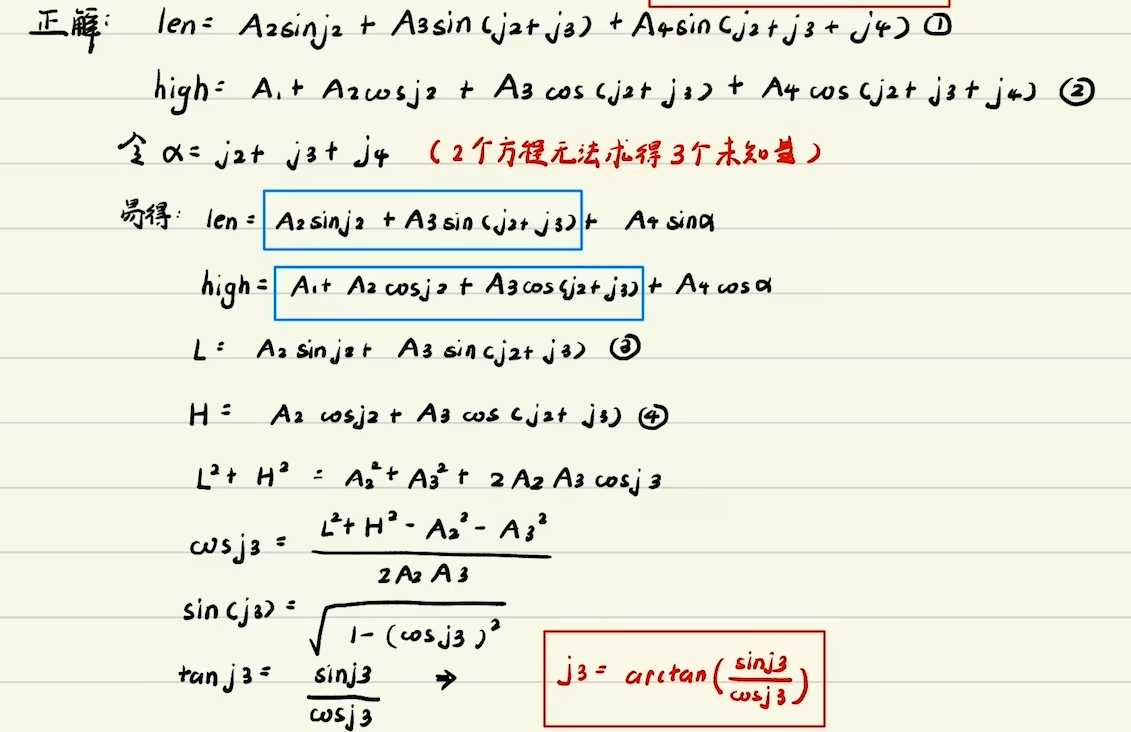 正解: len = A2sinj2 + A3sin(j2+j3) + A4sin(j2+j3+j4) ①
high = A1+ A2cosj2 + A3 cos(j2+j3) + A4 cos(j2+j3+j4) ②
令 α = j2+ j3+ j4 (2个方程无法求得3个未知量)
易得: len = A2sinj2 + A3sin(j2+j3) + A4 sinα
high = A1+ A2 cosj2 + A3cos(j2+j3) + A4 cosα
L = A2 sinj2+ A3 sin(j2+j3) ③
H = A2 cosj2 + A3 cos(j2+j3) ④
L²+ H² = A2²+ A3²+ 2A2 A3 cosj3
cosj3 = (L²+ H² - A2² - A3²) / (2A2 A3)
sin(j3) = √(1-(cosj3)²)
tanj3 = sinj3/cosj3 → j3 = arctan(sinj3/cosj3)